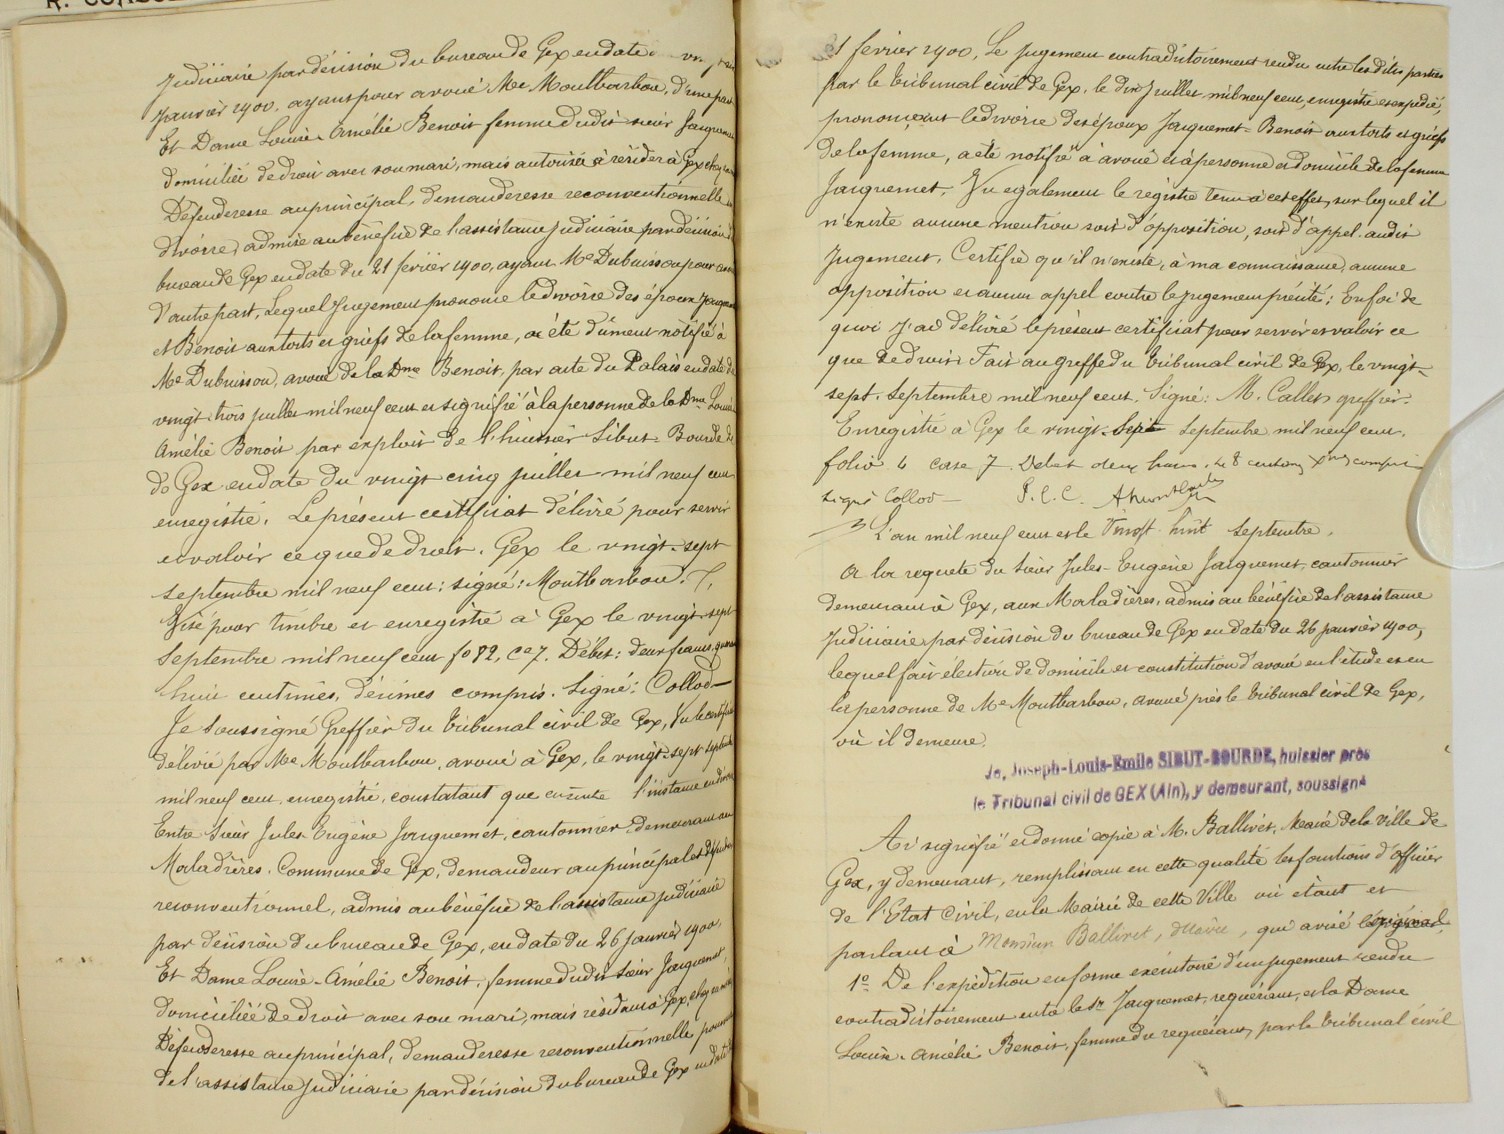 Judiciaire par décision du bureau de Gex en date
Janvier 1900, ayant pour avoué Me Montbarbon, d'une part
Et Dame Louise-Amélie Benoit femme dudit sieur Jacquemet
domiciliée de droit avec son mari, mais autorisée à résider à Gex
Défenderesse au principal, demanderesse reconventionnelle
divorce, admise au bénéfice de l'assistance judiciaire par décision
bureau de Gex en date du 21 février 1900, ayant Me Dubuisson pour
d'autre part, Lequel jugement prononce le divorce des époux
et Benoit aux torts et griefs de la femme, a été dûment notifié à
Me Dubuisson, avoué de la Dme Benoit, par acte du Palais en date du
vingt trois juillet mil neuf cent et signifié à la personne de la Dme Louise
Amélie Benoit par exploit de l'huissier Sibut-Bourde
de Gex en date du vingt cinq juillet mil neuf cent
enregistré. Le présent certificat délivré pour servir
et valoir ce que de droit. Gex le vingt-sept
septembre mil neuf cent: signé: Montbarbon.
Visé pour timbre et enregistré à Gex le vingt-sept
septembre mil neuf cent fo 82, ce 7. Débet: deux francs
huit centimes, décimes compris. Signé: Collod
Je soussigné Greffier du tribunal civil de Gex, Vu le certificat
délivré par Me Montbarbon, avoué à Gex, le vingt-sept septembre
mil neuf cent, enregistré, constatant que l'instance
Entre Sieur Jules Eugène Jacquemet, cantonnier demeurant aux
Maladières, Commune de Gex, demandeur au principal et défendeur
reconventionnel, admis au bénéfice de l'assistance judiciaire
par décision du bureau de Gex, en date du 26 janvier 1900,
Et Dame Louise-Amélie Benoit, femme dudit sieur Jacquemet,
domiciliée de droit avec son mari, mais résidant à Gex,
Défenderesse au principal, demanderesse reconventionnelle
de l'assistance Judiciaire par décision du bureau de Gex en date
21 février 1900, Le jugement contradictoirement rendu entre lesdites parties
par le tribunal civil de Gex, le dix Juillet mil neuf cent, enregistré et expédié,
prononçant le divorce des époux Jacquemet-Benoit aux torts et griefs
de la femme, a été notifié à avoué et à personne et domicile de la femme
Jacquemet. Vu également le registre tenu à cet effet, sur lequel il
n'existe aucune mention soit d'opposition, soit d'appel. audit
Jugement, Certifie qu'il n'existe, à ma connaissance, aucune
opposition et aucun appel contre le jugement précité; En foi de
quoi j'ai délivré le présent certificat pour servir et valoir ce
que de droit. Fait au greffe du tribunal civil de Gex, le vingt-
sept. septembre mil neuf cent. Signé: M. Callet greffier.
Enregistré à Gex le vingt-sept septembre mil neuf cent.
folio 4 case 7. Debet deux francs compris
signé Collod P. C. C.
L'an mil neuf cent et le Vingt huit septembre.
A la requete du sieur Jules-Eugène Jacquemet, cantonnier
demeurant à Gex, aux Maladières, admis au bénéfice de l'assistance
Judiciaire par décision du bureau de Gex en date du 26 janvier 1900,
lequel fait élection de domicile et constitution d'avoué en l'étude et en
la personne de Me Montbarbon, avoué près le tribunal civil de Gex,
où il demeure.
Je, Joseph-Louis-Emile SIBUT-BOURDE, huissier près
le Tribunal civil de GEX (Ain), y demeurant, soussigné
Ai signifié et donné copie à M. Ballivet, Maire de la Ville de
Gex, y demeurant, remplissant en cette qualité les fonctions d'officier
de l'Etat Civil, en la Mairie de cette Ville où étant et
parlant à Monsieur Ballivet, maire, qui a visé l'original,
1o De l'expédition en forme exécutoire d'un jugement rendu
contradictoirement entre le dt Jacquemet, requérant, et la Dame
Louise-Amélie Benoit, femme du requérant, par le tribunal civil